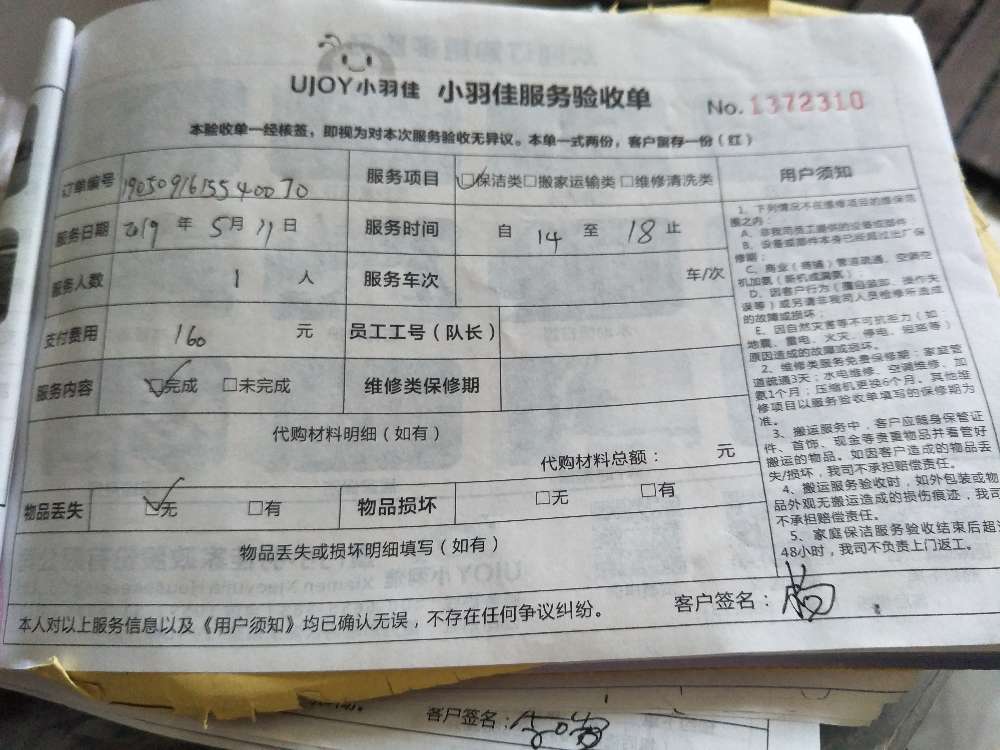 UJOY小羽佳 小羽佳服务验收单 No.1372310
本验收单一经核签，即视为对本次服务验收无异议。本单一式两份，客户留存一份（红）
订单编号 1905091615540070 服务项目 ☑保洁类□搬家运输类□维修清洗类
服务日期 2019 年 5月 11日 服务时间 自 14 至 18 止
服务人数 1 人 服务车次 车/次
支付费用 160 元 员工工号（队长）
服务内容 ☑完成 □未完成 维修类保修期
代购材料明细（如有）
代购材料总额： 元
物品丢失 ☑无 □有 物品损坏 □无 □有
物品丢失或损坏明细填写（如有）
本人对以上服务信息以及《用户须知》均已确认无误，不存在任何争议纠纷。 客户签名：
用户须知
1、下列情况不在维修项目的维保范
围之内：
A、非我司员工提供的设备或部件；
B、设备或部件本身已经超过出厂保
修期；
C、商业（商铺）管道疏通、空调空
机加氨（新机或漏氨）；
D、因客户行为（擅自装卸、操作失
误等）或另请非我司人员检修所造成
的故障或损坏；
E、因自然灾害等不可抗拒力（如：
地震、雷电、火灾、停电、短路等）
原因造成的故障或损坏。
2、维修类服务免费保修期：家庭管
道疏通3天；水电维修、空调维修、加
氨1个月；压缩机更换6个月。其他维
修项目以服务验收单填写的保修期为
准。
3、搬运服务中，客户应随身保管证
件、首饰、现金等贵重物品并看管好
搬运的物品。如因客户造成的物品丢
失/损坏，我司不承担赔偿责任。
4、搬运服务验收时，如外包装或物
品外观无搬运造成的损伤痕迹，我司
不承担赔偿责任。
5、家庭保洁服务验收结束后超过
48小时，我司不负责上门返工。
客户签名：